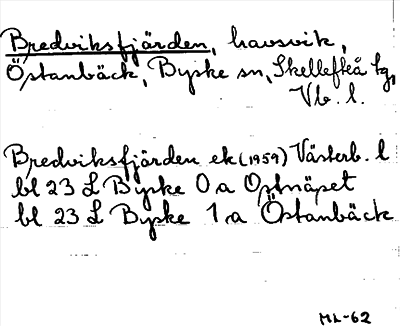 Bredviksfjärden, havsvik,
Östanbäck, Byske sn, Skellefteå tg,
Vb. l.
Bredviksfjärden ek (1959) Västerb. l
bl 23 L Byske 0 a Ostnäpet
bl 23 L Byske 1 a Östanbäck
ML-62